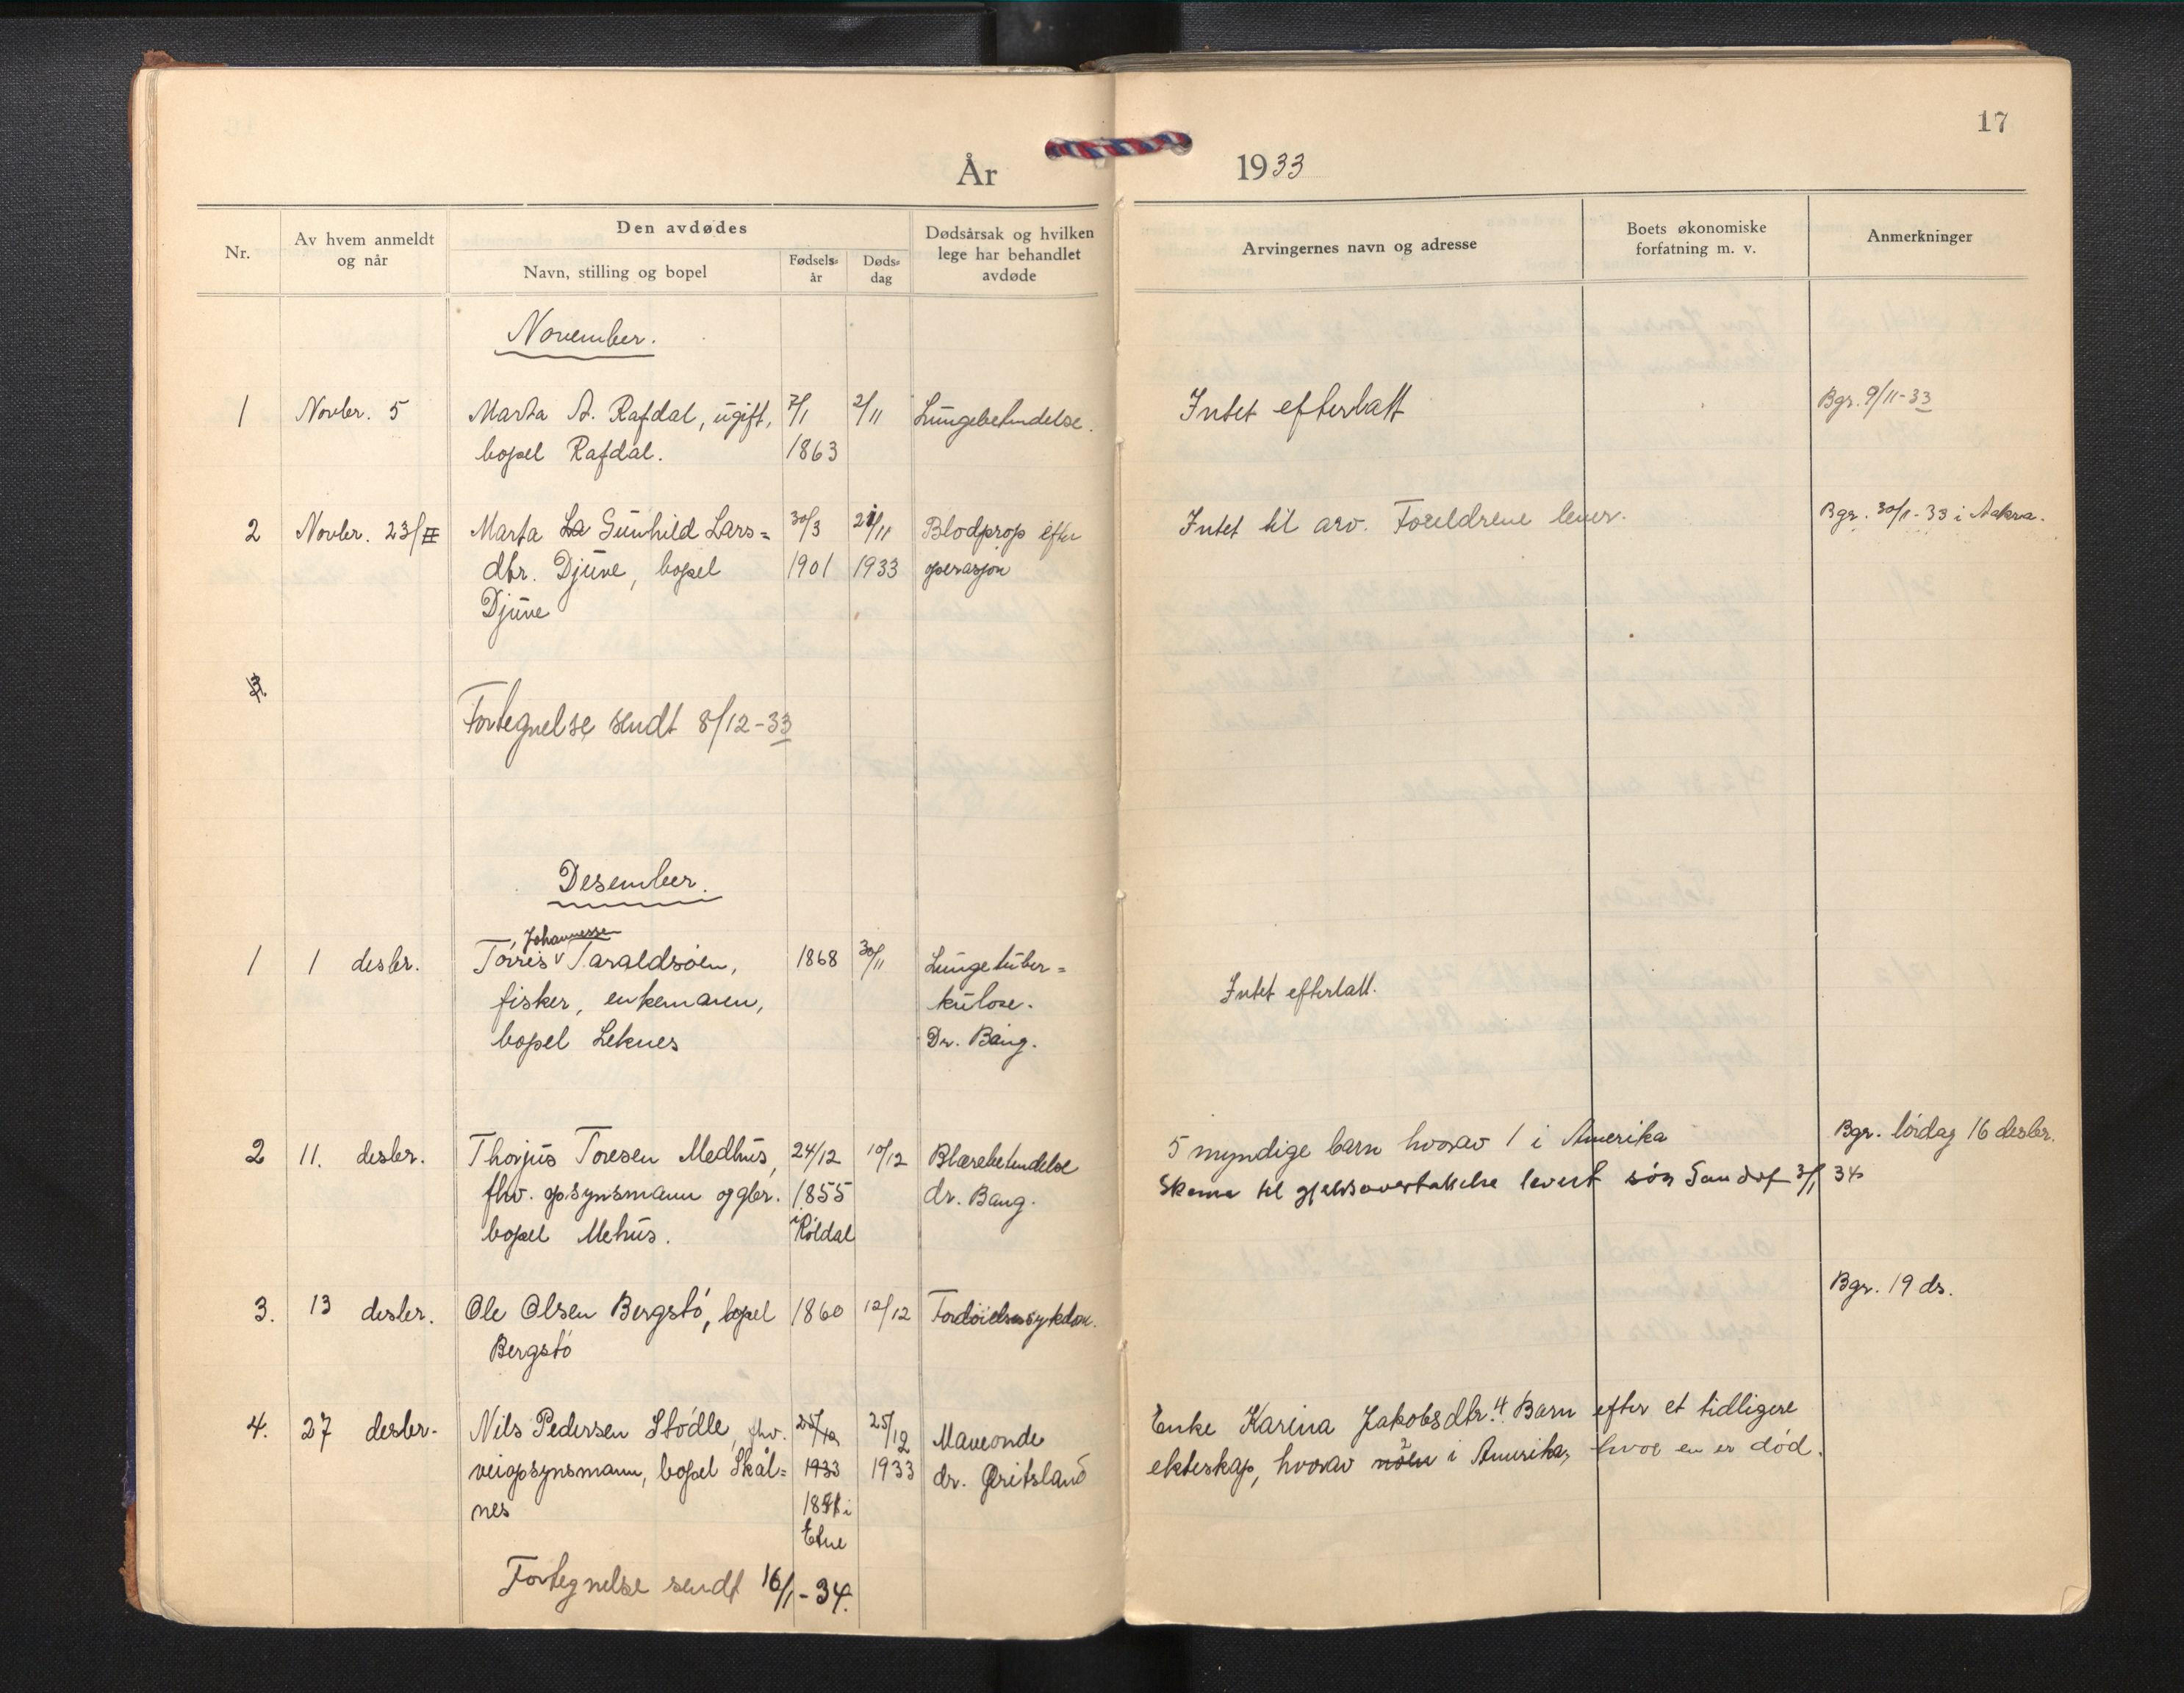 17
År 1933
Nr.
Av hvem anmeldt
og når
Den avdødes
Navn, stilling og bopel
Fødsels-
år
Døds-
dag
Dødsårsak og hvilken
lege har behandlet
avdøde
Arvingernes navn og adresse
Boets økonomiske
forfatning m. v.
Anmerkninger
November.
1 Novbr. 5 Marta A. Rafdal, ugift, 7/1 2/11 Lungebetendelse. Intet efterlatt Bgr. 9/11-33
bopel Rafdal. 1863
2 Novbr. 23/ Marta La Gunhild Lars= 30/3 21/11 Blodprop efter Intet til arv. Foreldrene lever. Bgr. 30/11-33 i Aakra.
dtr. Djuve, bopel 1901 1933 operasjon
Djuve
3.
Fortegnelse sendt 8/12-33
Desember.
Johannessen
1 1 desbr. Torris Taraldsøen, 1868 30/11 Lungetuber=
fisker, enkemann, kulose. Intet efterlatt.
bopel Leknes Dr. Bang.
2 11. desbr. Thorjus Toresen Medhus, 24/12 10/12 Blærebetendelse 5 myndige barn hvorav 1 i Amerika Bgr. lørdag 16 desbr.
fhv. opsynsmann og gbr. 1855 dr. Bang. Skema til gjeldsovertakelse levert søn 3/1 34
bopel Mehus. i Røldal
3. 13 desbr. Ole Olsen Bergstø, bopel 1860 12/12 Fordøielsessykdom. Bgr. 19 ds.
Bergstø
4. 27 desbr. Nils Pedersen Stødle, fhv. 25/12 25/12 Maveonde Enke Karina Jakobsdtr. 4 Barn efter et tidligere
veiopsynsmann, bopel Skål= 1933 1933 dr. Gritsland ekteskap, hvorav noen 2 i Amerika, hvor en er død.
nes i
Etne
Fortegnelse sendt 16/1-34.